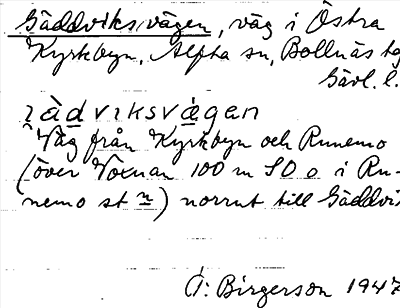 Gäddviksvägen, väg i Östra
Kyrkbyn, Alfta sn, Bollnäs tg
Gävl. l.
jädviksvägen
Väg från Kyrkbyn och Runemo
(över Voxnan 100 m SO o i Ru-
nemo st n) norrut till Gäddvi
Birgerson 1947